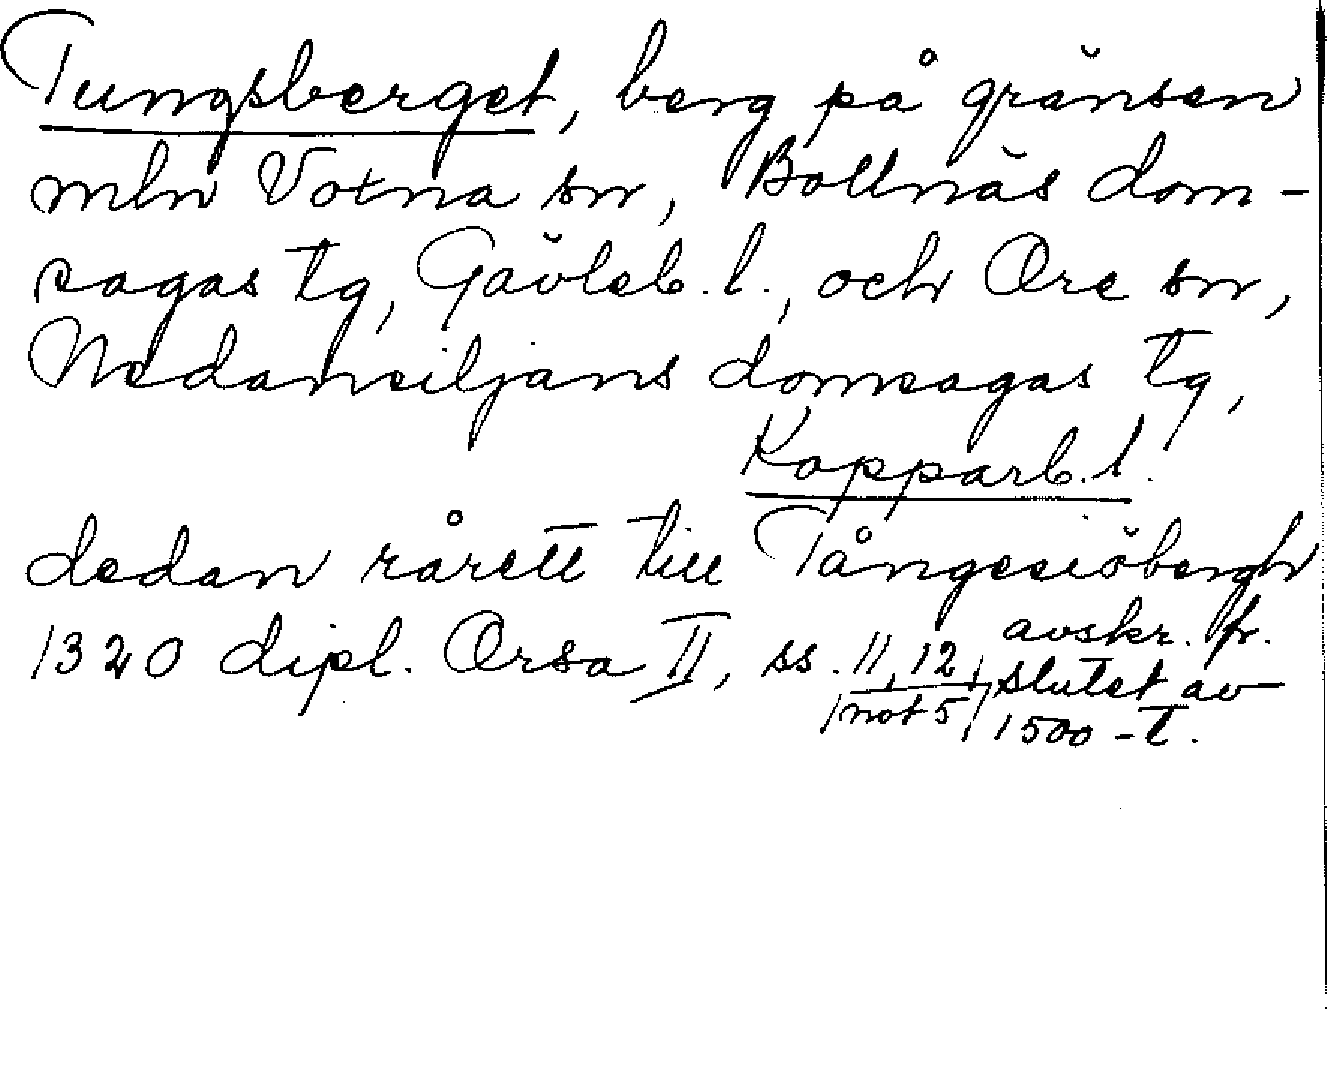 Tungsberget, berg på gränsen
mln Voxna sn, Bollnäs dom-
sagas tg, Gävleb. l., och Ore sn,
Nedansiljans domsagas tg,
Kopparb. l.
dedan rårett till Tångesiöbergh
1320 dipl. Orsa II, ss. 11, 12, avskr. fr.
not 5 slutet av
1500-t.